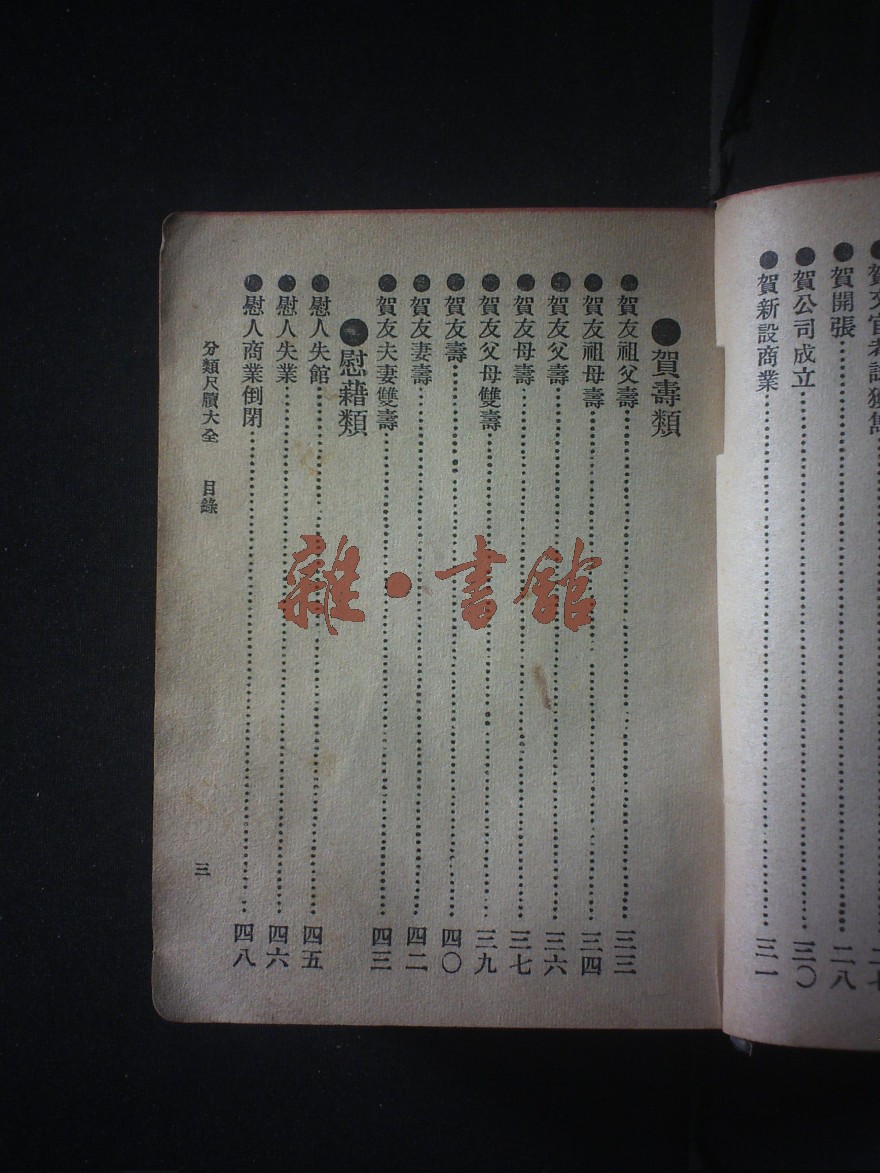 賀開張 二八
賀公司成立 三〇
賀新設商業 三一
賀壽類
賀友祖父壽 三三
賀友祖母壽 三四
賀友父壽 三六
賀友母壽 三七
賀友父母雙壽 三九
賀友壽 四〇
賀友妻壽 四二
賀友夫妻雙壽 四三
慰藉類
慰人失館 四五
慰人失業 四六
慰人商業倒閉 四八
分類尺牘大全 目錄 三
雜·書館